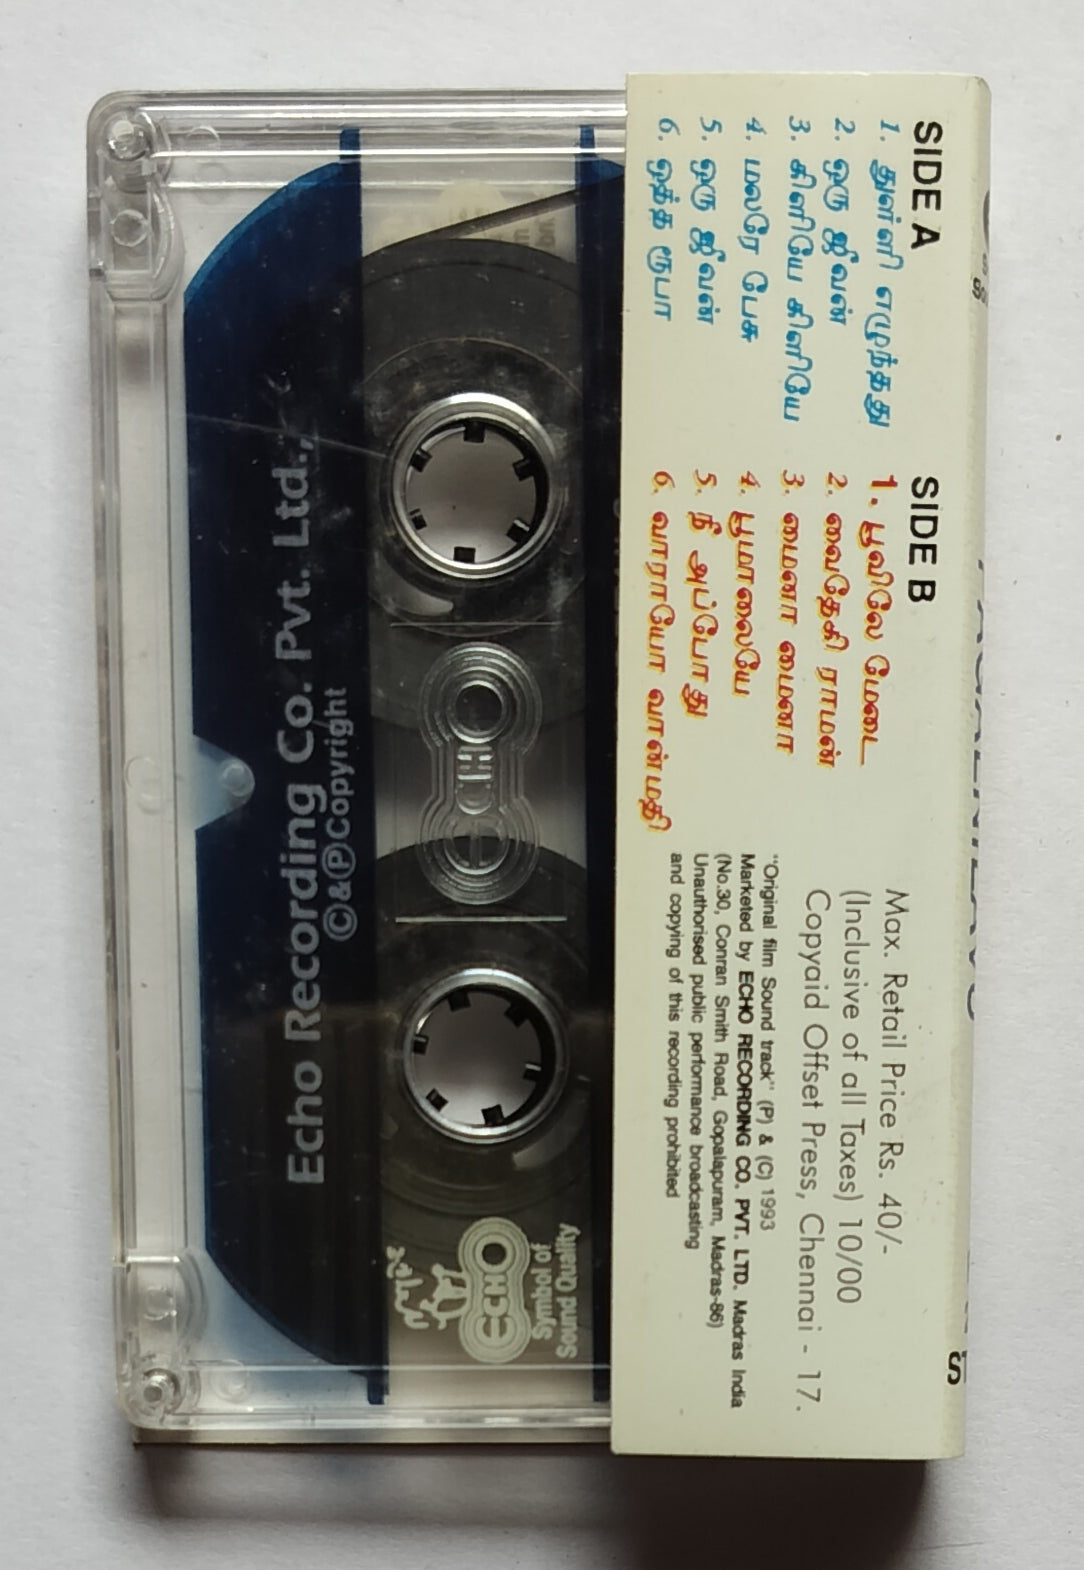 SIDE A
1. துள்ளி எழுந்தது
2. ஒரு ஜீவன்
3. கிளியே கிளியே
4. மலரே பேசு
5. ஒரு ஜீவன்
6. ஒத்த ரூபா
SIDE B
1. பூவிலே மேடை
2. வைதேகி ராமன்
3. மைனா மைனா
4. பூமாலையே
5. நீ அப்போது
6. வாராயோ வான்மதி
Max. Retail Price Rs. 40/-
(Inclusive of all Taxes) 10/00
Copyaid Offset Press, Chennai - 17.
"Original film Sound track" (P) & (C) 1993
Marketed by ECHO RECORDING CO. PVT. LTD. Madras India
(No.30, Conran Smith Road, Gopalapuram, Madras-86)
Unauthorised public performance broadcasting
and copying of this recording prohibited
ECHO
ECHO
Symbol of
Sound Quality
©&℗Copyright
Echo Recording Co. Pvt. Ltd.,